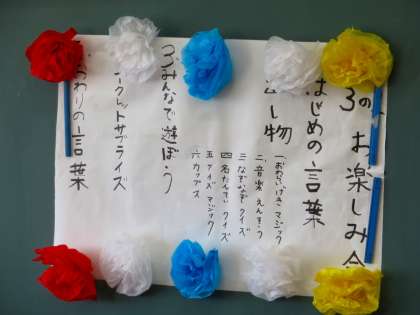 3のお楽しみ会
はじめの言葉
出し物
一、おわらいげき マジック
二、音楽 えんそう
三、なぞなぞ クイズ
四、名たんてい クイズ
五、クイズ マジック
六、カップス
みんなで遊ぼう
ークレットサプライズ
わりの言葉